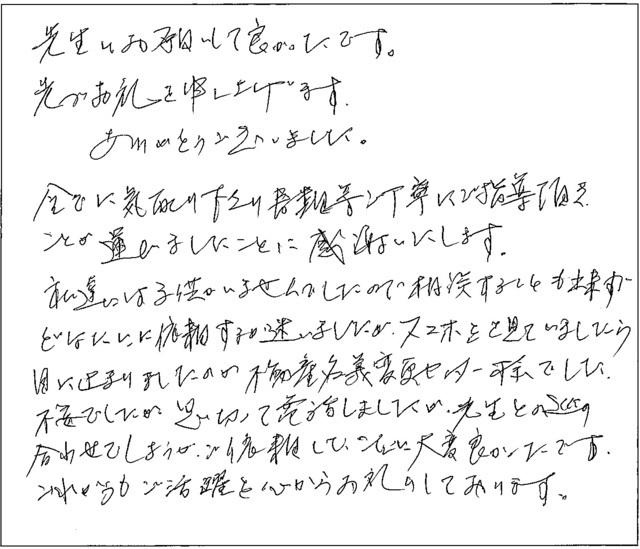 先生にお願いして良かったです。
先ずお礼を申し上げます。
ありがとうございました。
全てに気配り下さり書類等を丁寧にご指導頂き
ことが運びましたことに感謝いたします。
私達には子供がいませんでしたので相談することも出来ず
どなたに依頼するか迷いましたが、スマホを見ていましたら
目に止まりましたのが不動産名義変更センター様でした。
不安でしたが思い切って電話しましたが、先生との
合わせでしょうか、ご依頼して、大変良かったです。
これからもご活躍を心からお祈りしております。